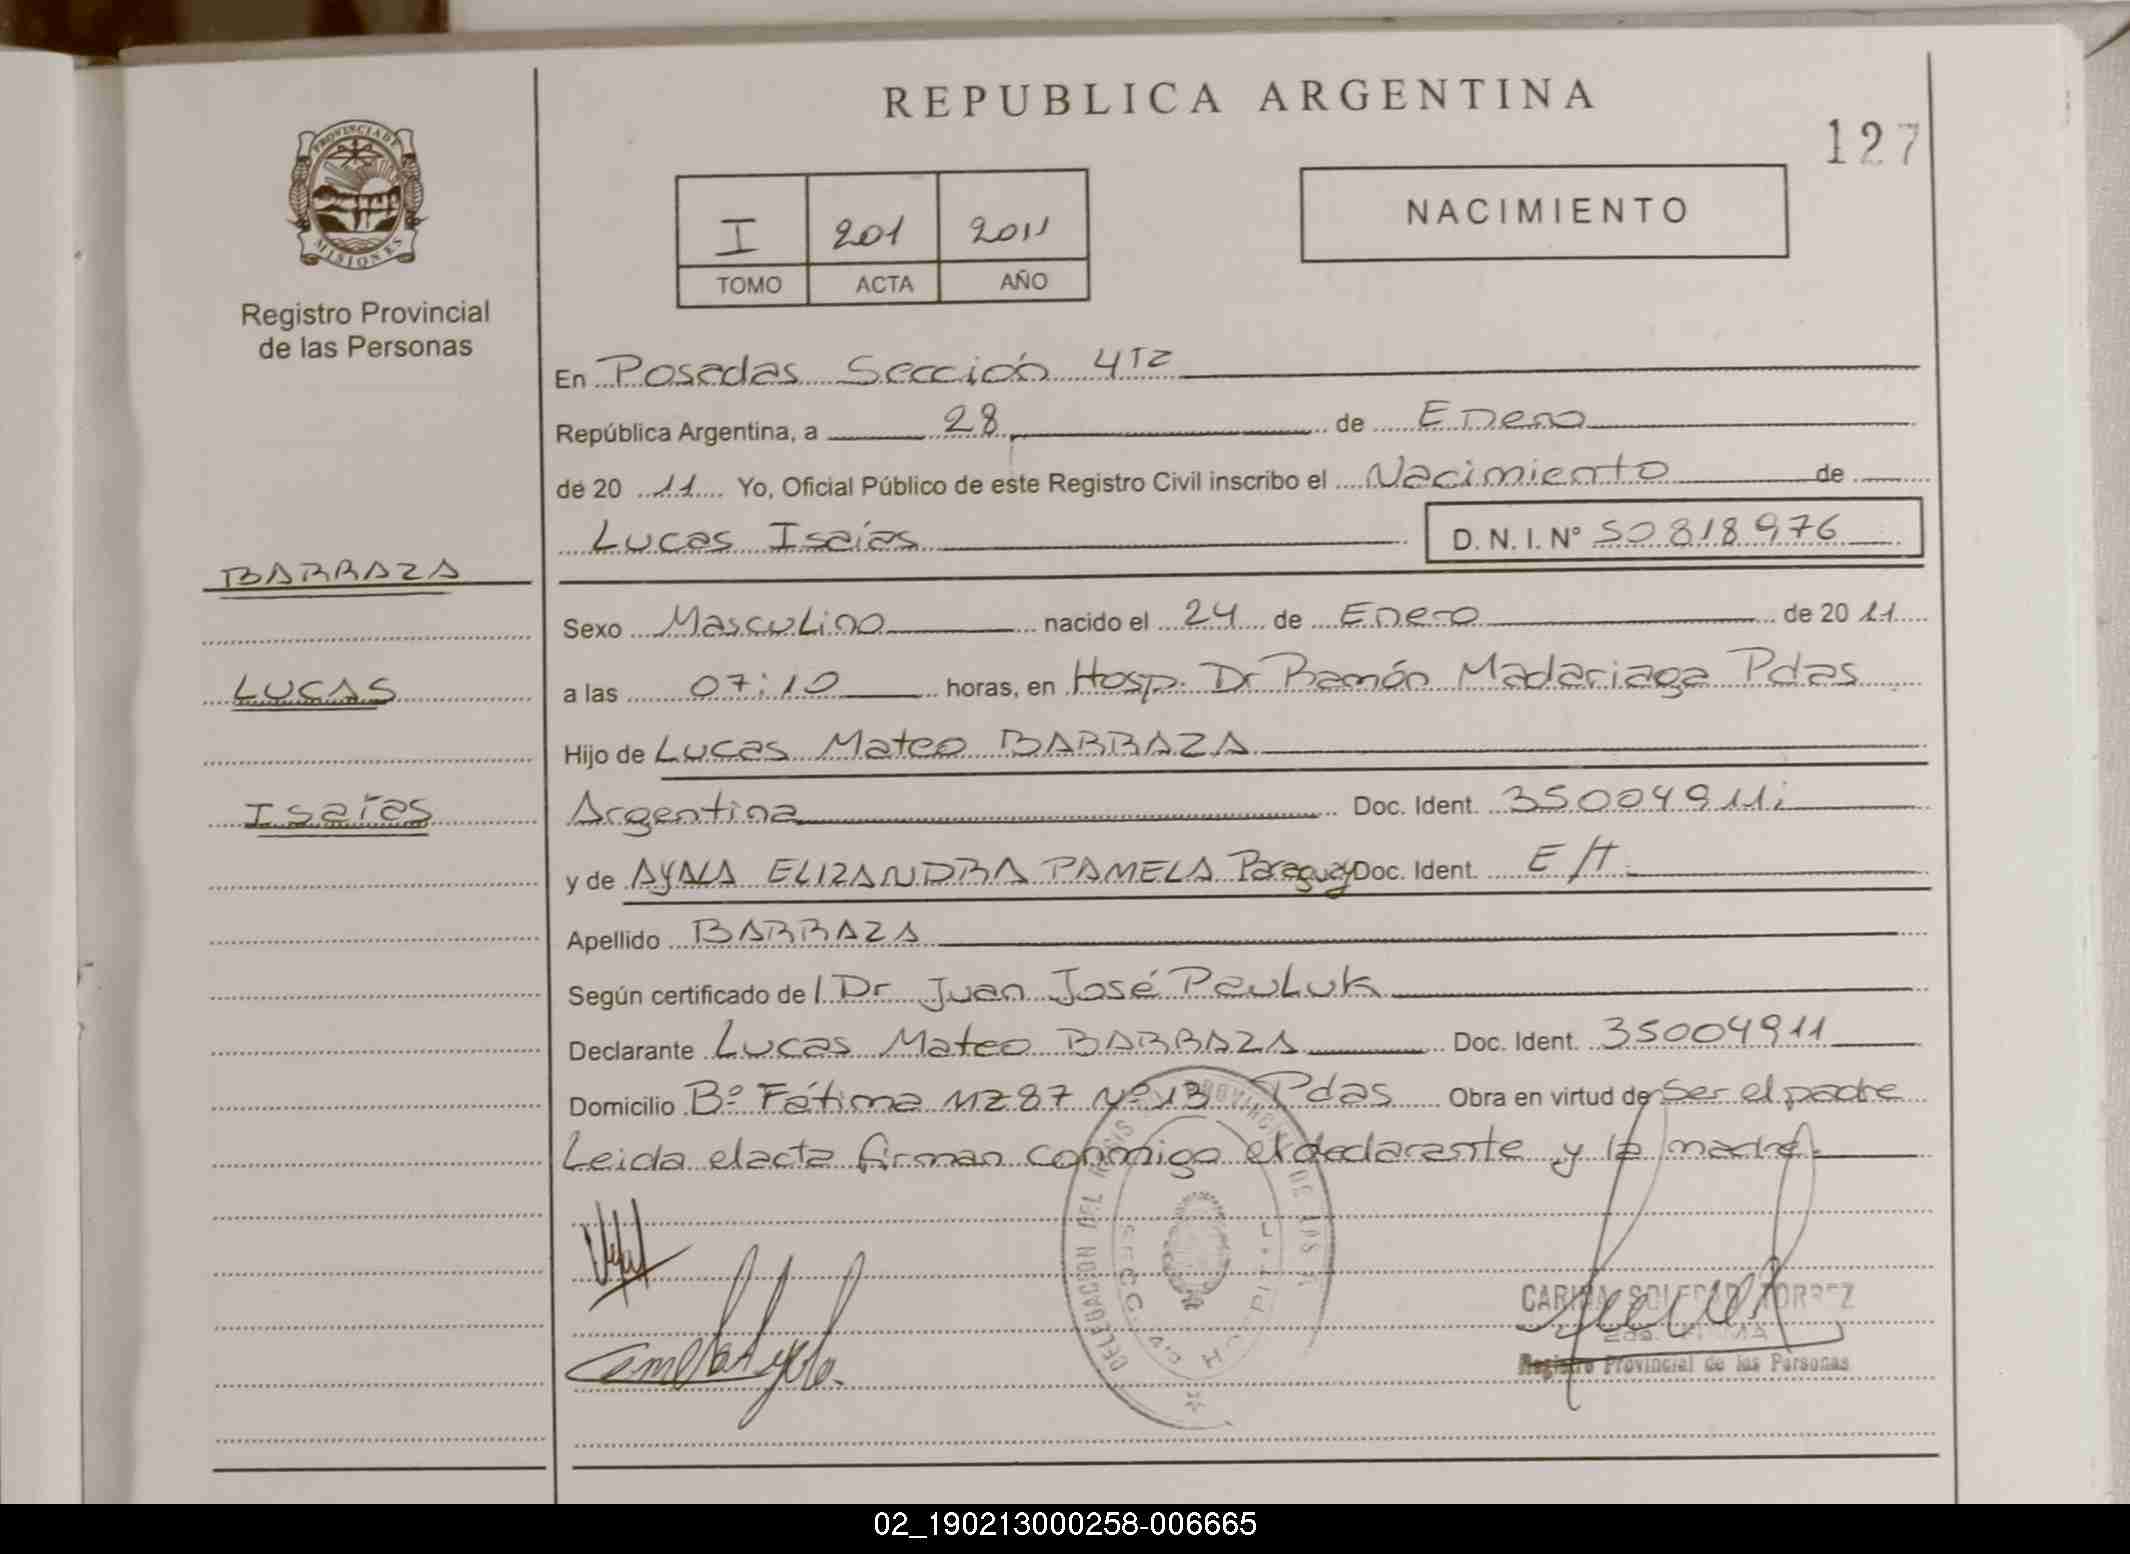 REPUBLICA ARGENTINA
127
PROVINCIA DE MISIONES
Registro Provincial
de las Personas
I 201 2011
TOMO ACTA AÑO
NACIMIENTO
En Posadas Sección 4ta
República Argentina, a 28 de Enero
de 20 11 Yo, Oficial Público de este Registro Civil inscribo el Nacimiento de
Lucas Isaías D. N. I. Nº 50818976
BARRAZA
LUCAS
Isaías
Sexo Masculino nacido el 24 de Enero de 20 11
a las 07:10 horas, en Hosp. Dr Ramón Madariaga Pdas
Hijo de Lucas Mateo BARRAZA
Argentina Doc. Ident. 35004911
y de AYALA ELIZANDRA PAMELA Paraguay Doc. Ident. E/T
Apellido BARRAZA
Según certificado de l Dr Juan José Pauluk
Declarante Lucas Mateo BARRAZA Doc. Ident. 35004911
Domicilio Bº Fátima MZ 87 Nº 13 Pdas Obra en virtud de Ser el padre
Leida el acta firman conmigo el declarante y la madre.
DELEGACION DEL
SECC.
CARINA SOLEDAD TORREZ
Registro Provincial de las Personas
02_190213000258-006665